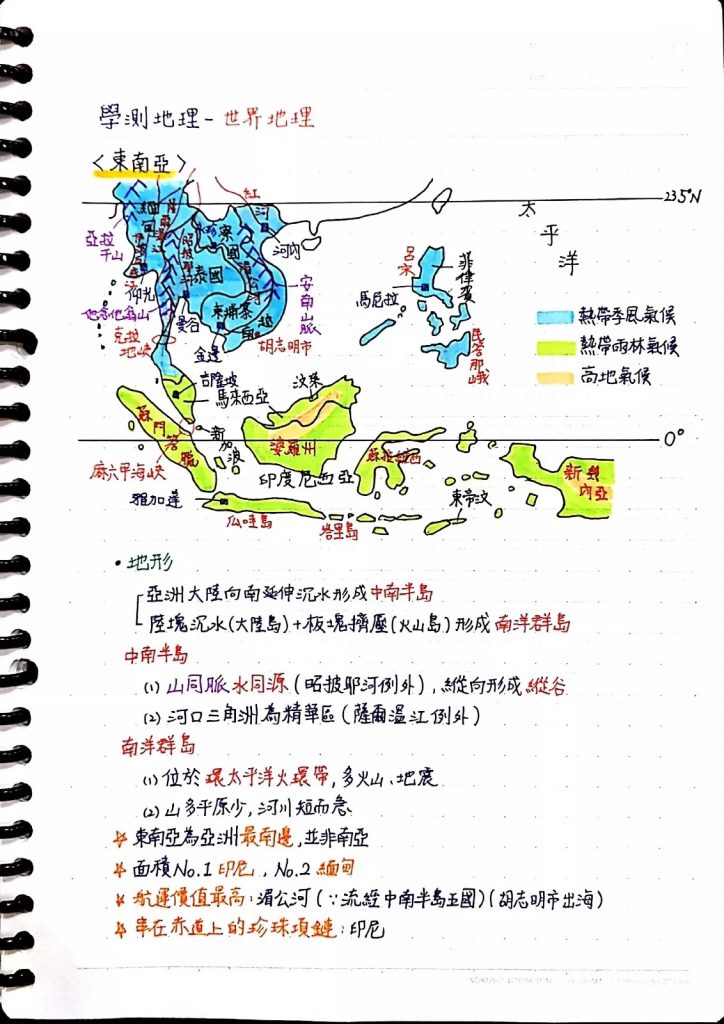 學測地理-世界地理
<東南亞>
23.5°N
太
平
洋
紅
河
緬甸
薩爾溫江
亞拉干山
伊洛瓦底江
昭披耶河
寮國
河內
泰國
湄公河
安南山脈
仰光
他念他翁山
曼谷
柬埔寨
越南
克拉地峽
金邊
胡志明市
呂宋
菲律賓
馬尼拉
民答那峨
熱帶季風氣候
熱帶雨林氣候
高地氣候
吉隆坡
馬來西亞
汶萊
蘇門答臘
新加坡
婆羅州
0°
麻六甲海峽
印度尼西亞
蘇拉維西
新幾內亞
雅加達
東帝汶
爪哇島
峇里島
•地形
亞洲大陸向南延伸沉水形成中南半島
陸塊沉水(大陸島)+板塊擠壓(火山島)形成南洋群島
中南半島
(1) 山同脈水同源(昭披耶河例外),縱向形成縱谷
(2) 河口三角洲為精華區(薩爾溫江例外)
南洋群島
(1) 位於環太平洋火環帶,多火山、地震
(2) 山多平原少,河川短而急
☆東南亞為亞洲最南邊,並非南亞
☆面積No.1印尼,No.2緬甸
☆航運價值最高:湄公河(∵流經中南半島五國)(胡志明市出海)
☆串在赤道上的珍珠項鏈:印尼